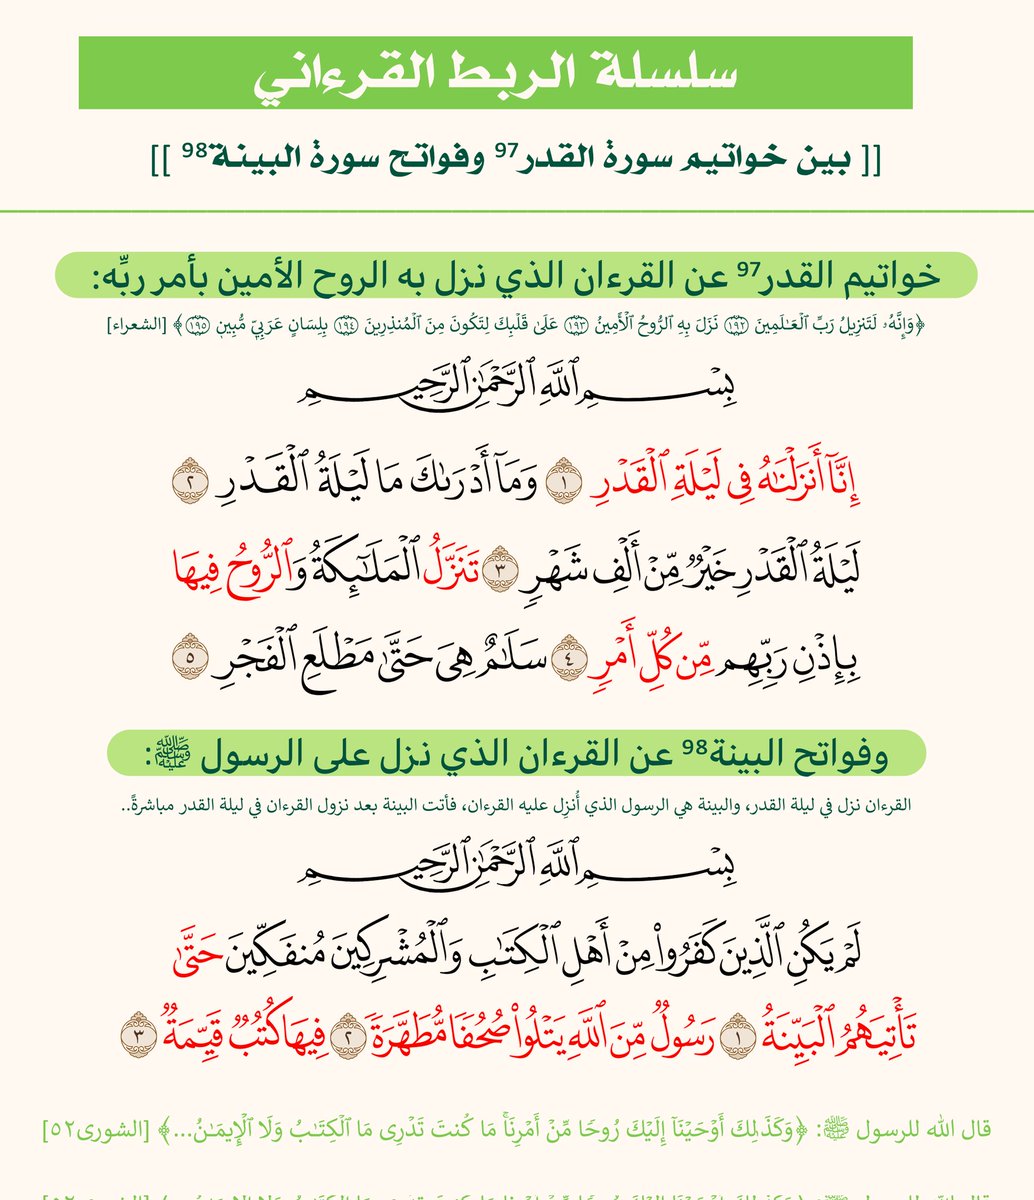 سلسلة الربط القرءاني
[[ بين خواتيم سورة القدر97 وفواتح سورة البينة98 ]]
خواتيم القدر97 عن القرءان الذي نزل به الروح الأمين بأمر ربِّه:
﴿وَإِنَّهُۥ لَتَنزِيلُ رَبِّ ٱلْعَـٰلَمِينَ ١٩٢ نَزَلَ بِهِ ٱلرُّوحُ ٱلْأَمِينُ ١٩٣ عَلَىٰ قَلْبِكَ لِتَكُونَ مِنَ ٱلْمُنذِرِينَ ١٩٤ بِلِسَانٍ عَرَبِىٍّ مُّبِينٍ ١٩٥﴾ [الشعراء]
بِسْمِ ٱللَّهِ ٱلرَّحْمَـٰنِ ٱلرَّحِيمِ
إِنَّآ أَنزَلْنَـٰهُ فِى لَيْلَةِ ٱلْقَدْرِ ١ وَمَآ أَدْرَىٰكَ مَا لَيْلَةُ ٱلْقَدْرِ ٢
لَيْلَةُ ٱلْقَدْرِ خَيْرٌ مِّنْ أَلْفِ شَهْرٍ ٣ تَنَزَّلُ ٱلْمَلَـٰٓئِكَةُ وَٱلرُّوحُ فِيهَا
بِإِذْنِ رَبِّهِم مِّن كُلِّ أَمْرٍ ٤ سَلَـٰمٌ هِىَ حَتَّىٰ مَطْلَعِ ٱلْفَجْرِ ٥
وفواتح البينة98 عن القرءان الذي نزل على الرسول ﷺ:
القرءان نزل في ليلة القدر، والبينة هي الرسول الذي أُنزِل عليه القرءان، فأتت البينة بعد نزول القرءان في ليلة القدر مباشرةً..
بِسْمِ ٱللَّهِ ٱلرَّحْمَـٰنِ ٱلرَّحِيمِ
لَمْ يَكُنِ ٱلَّذِينَ كَفَرُوا۟ مِنْ أَهْلِ ٱلْكِتَـٰبِ وَٱلْمُشْرِكِينَ مُنفَكِّينَ حَتَّىٰ
تَأْتِيَهُمُ ٱلْبَيِّنَةُ ١ رَسُولٌ مِّنَ ٱللَّهِ يَتْلُوا۟ صُحُفًا مُّطَهَّرَةً ٢ فِيهَا كُتُبٌ قَيِّمَةٌ ٣
قال الله للرسول ﷺ: ﴿وَكَذَٰلِكَ أَوْحَيْنَآ إِلَيْكَ رُوحًا مِّنْ أَمْرِنَا ۚ مَا كُنتَ تَدْرِى مَا ٱلْكِتَـٰبُ وَلَا ٱلْإِيمَـٰنُ...﴾ [الشورى٥٢]